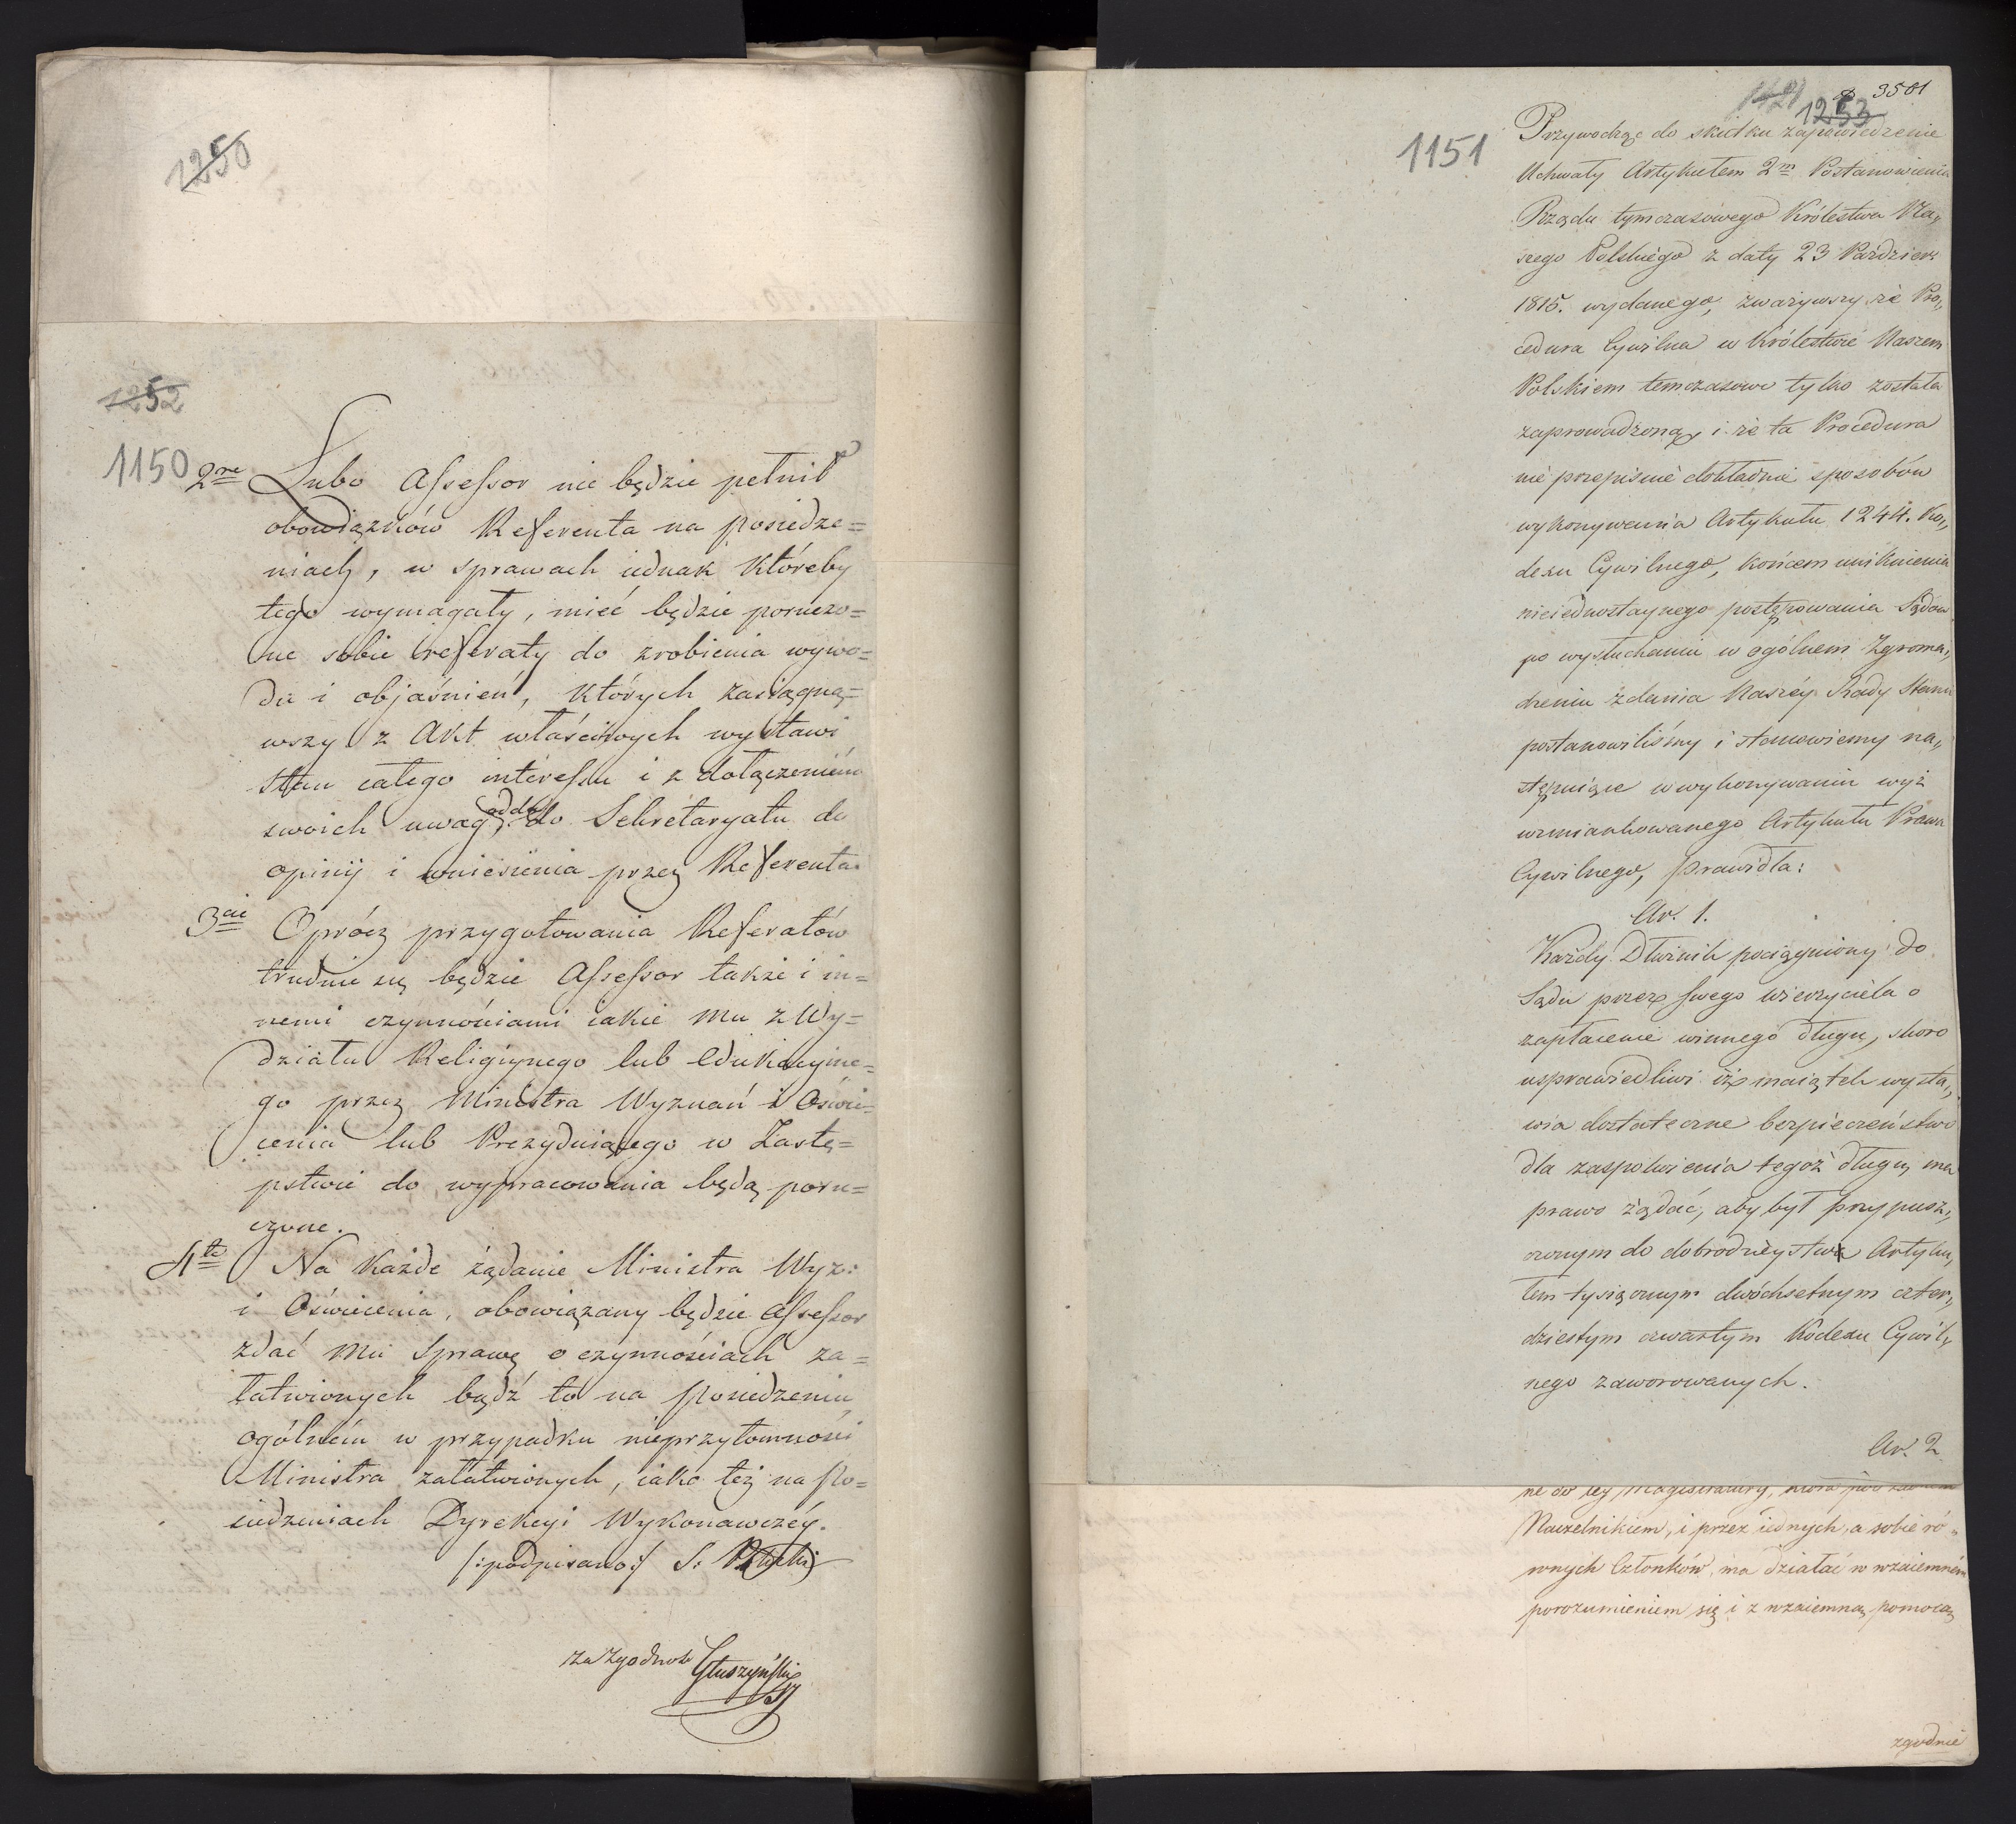 1250
1252
1150
2re Lubo Assessor nie będzie pełnił
obowiązków Referenta na posiedze=
niach, w sprawach iednak któreby
tego wymagały, mieć będzie poruczo=
ne sobie referaty do zrobienia wywo=
du i objaśnień, których zasiągną=
wszy z Akt właściwych wystawi
stan całego interessu i z dołączeniem
swoich uwag, odda do Sekretaryatu do
opinij i wniesienia przez Referenta
3cie Oprócz przygotowania Referatów
trudnić się będzie Assessor także i in=
nemi czynnościami iakie mu z Wy=
działu Religiynego lub Edukacyine=
go przez Ministra Wyznań i Oświe=
cenia lub Prezyduiącego w Zastę=
pstwie do wypracowania będą poru=
czone.
4te Na każde żądanie Ministra Wyz:
i Oświecenia, obowiązany będzie Assessor
zdać mu Sprawę o czynnościach za=
łatwionych bądź to na posiedzeniu
ogólnem w przypadku nieprzytomności
Ministra załatwionych, iako też na po=
siedzeniach Dyrekcyi Wykonawczéy.
/:podpisano:/ S: Potocki
Za Zgodność Głuszyński
3501
1253
1151
Przywodząc do skutku zapowiedzenie
Uchwały Artykułem 2m Postanowienia
Rządu tymczasowego Królestwa Na„
szego Polskiego z daty 23 Paźdźier:
1815. wydanego, zważywszy, że Pro„
cedura Cywilna w Królestwie Naszem
Polskiem temczasowo tylko została
zaprowadzoną, i że ta Procedura
nie przepisuie dokładnie sposobów
wykonywania Artykułu 1244. Ko„
dexu Cywilnego, końcem uniknienia
nieiednostaynego postępowania Sądów
po wysłuchaniu w ogólnem Zgroma„
dzeniu zdania Naszéy Rady Stanu
postanowiliśmy i stanowiemy na„
stępuiące w wykonywaniu wyż
wzmiankowanego Artykułu Prawa
Cywilnego, prawidła:
Ar. 1.
Każdy Dłużnik pociągniony do
Sądu przez swego wierzyciela o
zapłacenie winnego długu, skoro
usprawiedliwi iż maiątek wysta„
wia dostateczne bezpieczeństwo
dla zaspokoienia tegoż długu, ma
prawo żądać, aby był przypusz„
czonym do dobrodzieystwa Artyku„
łem tysiącznym dwóchsetnym czter„
dziestym czwartym Kodexu Cywil„
nego zawarowanych.
Ar. 2
ne do tey Magistratury, która pod
Naczelnikiem, i przez iednych, a sobie ró„
wnych Członków, ma działać w wzaiemném
porozumieniem się i z wzaiemną pomocą
zgodnie